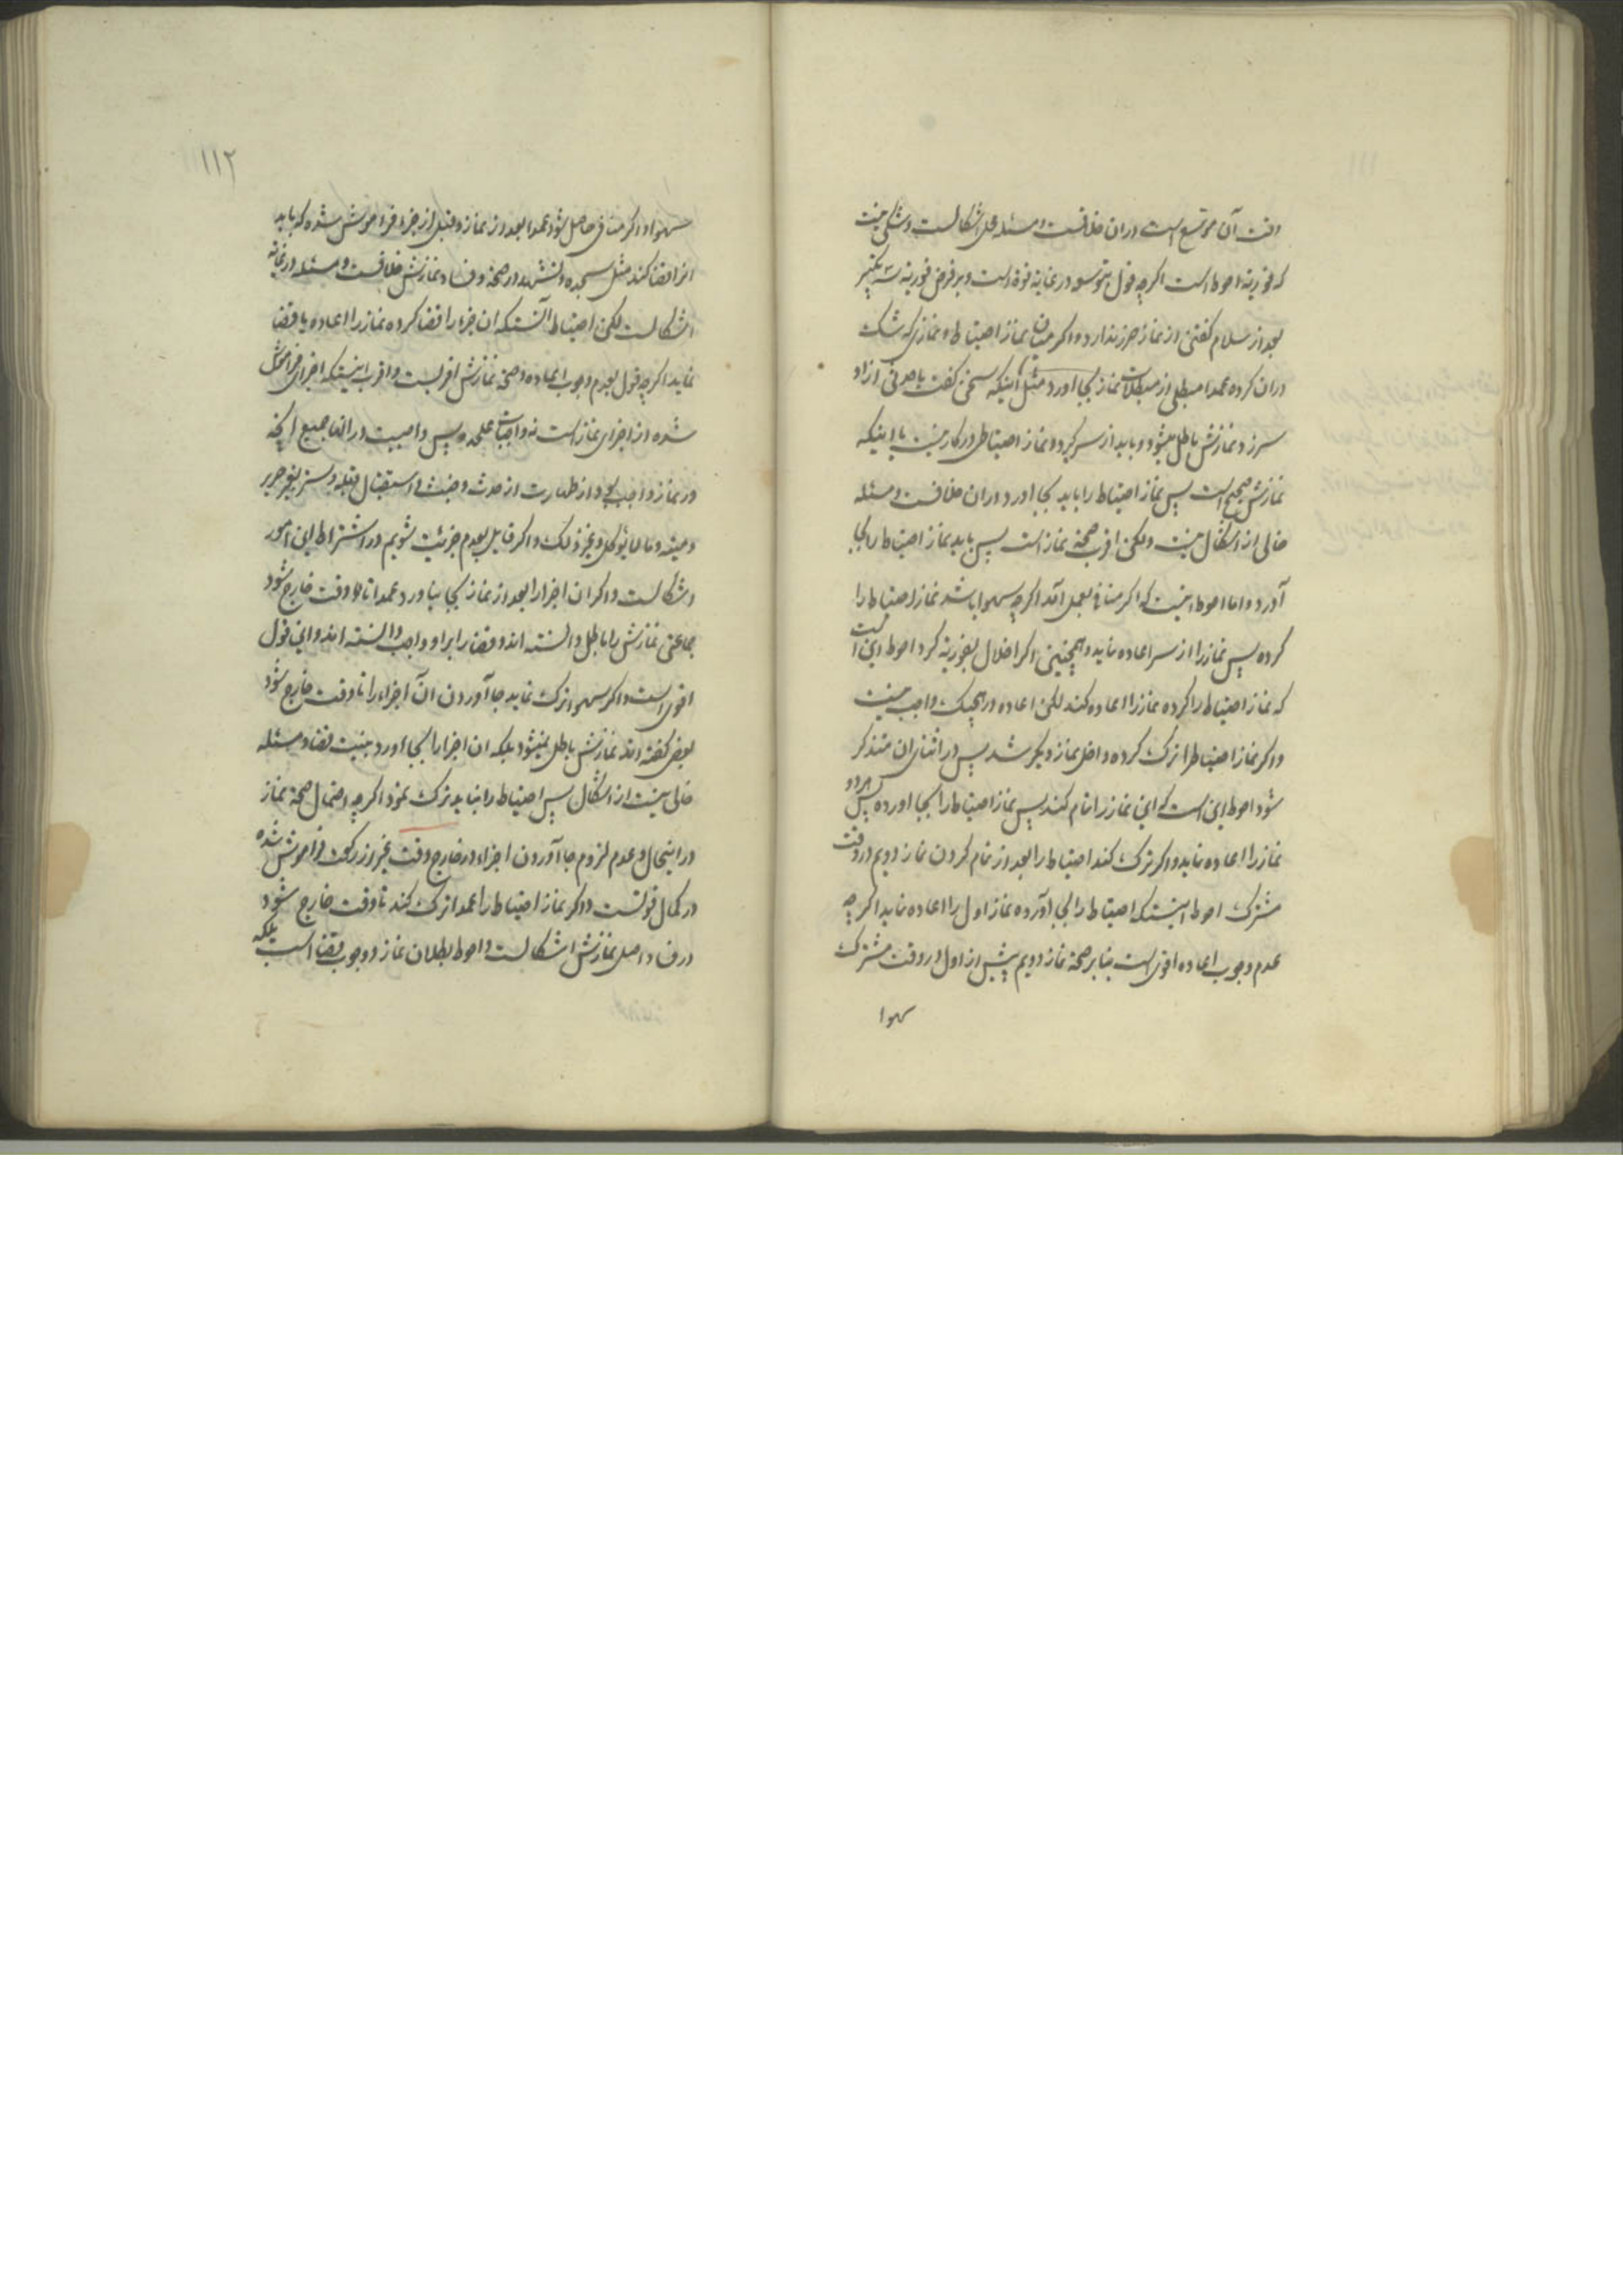 وقت آن موسع است دران خلافست و مسئله محل اشکالست و شکی نیست
که فوریة احوط است اگرچه قول بتوسعه در غایة قوة است و بر فرض فوریة سه تکبیر
بعد از سلام گفتن از نماز ضرر ندارد و اگر میان نماز احتیاط و نمازی که شک
دران کرده عمدا مبطلی از مبطلات نماز بجا اورد مثل اینکه سخن گفت یا حدثی ازاو
سرزد نمازش باطل میشود و باید از سر گیرد و نماز احتیاطی در کار نیست یا اینکه
نمازش صحیح است پس نماز احتیاط را باید بجا اورد دران خلافست و مسئله
خالی از اشکال نیست ولکن اقرب صحة نماز است پس باید نماز احتیاط را بجا
آورد و اما احوط اینست که اگر منافی بعمل آمد اگرچه سهوا باشد نماز احتیاط را
کرده پس نماز را از سر اعاده نماید و همچنین اگر اخلال بفوریة کرد احوط این است
که نماز احتیاط را کرده نماز را اعاده کند لکن اعاده در هیچیک واجب نیست
و اگر نماز احتیاط را ترک کرده داخل نماز دیگر شد پس در اثنای ان متذکر
شود احوط این است که این نماز را تمام کند پس نماز احتیاط را بجا اورده پس هر دو
نماز را اعاده نماید و اگر ترک کند احتیاط را بعد از تمام کردن نماز دویم در وقت
مشترک احوط اینستکه احتیاط را بجا آورده نماز اول را اعاده نماید اگرچه
عدم وجوب اعاده اقوی است بنا بر صحة نماز دویم پیش از اول در وقت مشترک
سهوا
۱۱۲
سهوا و اگر منافی حاصل شود عمدا بعد از نماز و قبل از جزء فراموش شده که باید
انرا قضا کند مثل سجده و تشهد در صحة و فساد نمازش خلافست و مسئله در غایة
اشکالست لکن احتیاط آنستکه ان جزء را قضا کرده نماز را اعاده یا قضا
نماید اگرچه قول بعدم وجوب اعاده و صحة نمازش اقربست و اقرب اینستکه اجزای فراموش
شده از اجزای نماز است نه واجبات علیحده پس واجبست در انها جمیع انچه
در نماز واجب بود از طهارت از حدث و خبث و استقبال قبله و ستر بغیر حریر
و میته و ما لا یؤکل و غیر ذلک و اگر قایل بعدم جزئیت شویم در اشتراط این امور
اشکالست و اگر ان اجزا را بعد از نماز بجا نیاورد عمدا تا وقت خارج شود
جماعتی نمازش را باطل دانسته اند و قضا را بر او واجب دانسته اند و این قول
اقوی است و اگر سهوا ترک نماید جا آوردن آن اجزاء را تا وقت خارج شود
بعضی گفته اند نمازش باطل نمیشود بلکه ان اجزا را بجا اورد بنیت قضا و مسئله
خالی نیست از اشکال پس احتیاط را نباید ترک نمود اگرچه احتمال صحة نماز
در اینحال و عدم لزوم جا آوردن اجزاء در خارج وقت غیر از رکعت فراموش شده
در کمال قوتست و اگر نماز احتیاط را عمدا ترک کند تا وقت خارج شود
در فساد اصل نمازش اشکالست و احوط بطلان نماز و وجوب قضا است بلکه